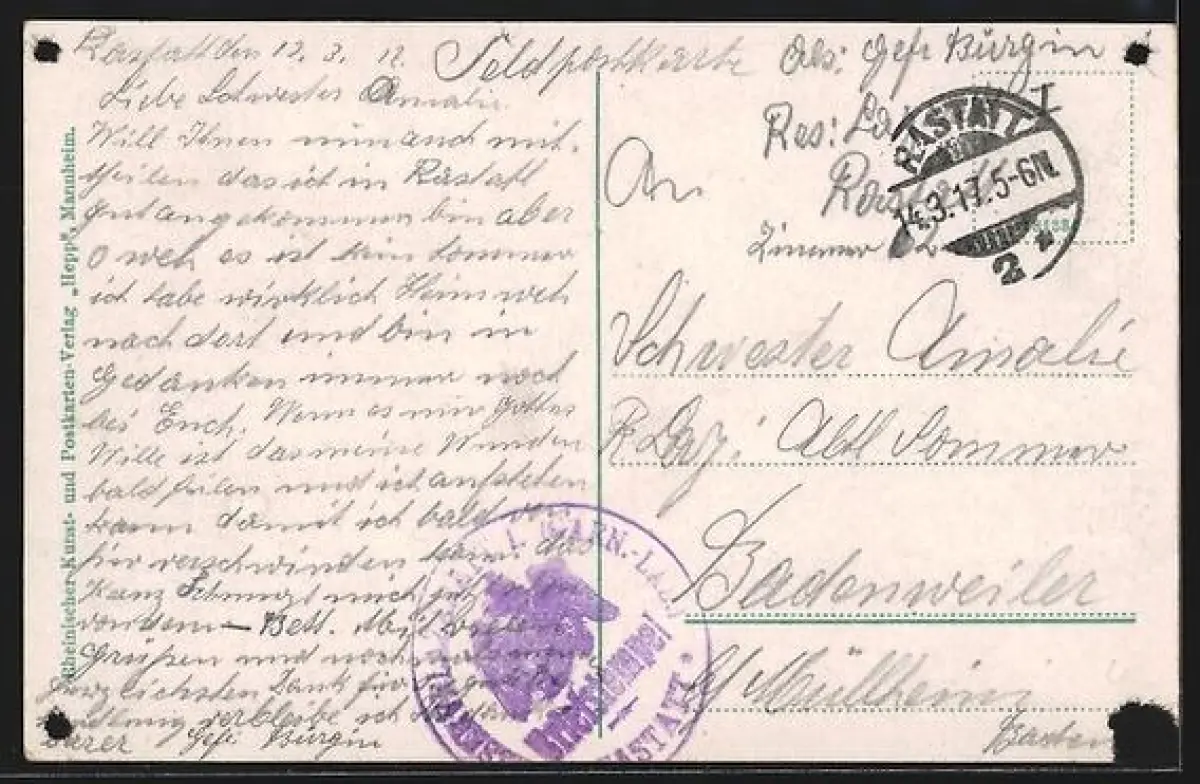 Rastatt den 12. 3. 17.
Liebe Schwester Amalie.
Will Ihnen nun auch mit-
theilen das ich in Rastatt
gut angekommen bin aber
O weh es ist kein Sommer
ich habe wirklich Heimweh
nach dort und bin in
Gedanken immer noch
bei Euch. Wenn es nur Gottes
Wille ist das meine Wunden
bald heilen und ich aufstehen
kann damit ich bald von
hir verschwinden kann das
Kanz Schmerzt mich
von dem — Bett. Mit vielen
Grüßen und nochmals
herzlichsten Dank für
verbleibe ich
Gefr Bürgin
Feldpostkarte
Abs: Gefr Bürgin
Res: Laz I
Rastatt
Zimmer 62
An
Schwester Amalie
R. Laz: Altl Sommer
Badenweiler
b/ Müllheim
Baden
RASTATT
14.3.17. 5-6N.
* 2 *
GARN.-LAZ.
Briefstempel
RASTATT
Rheinischer Kunst- und Postkarten-Verlag „Hepp", Mannheim.